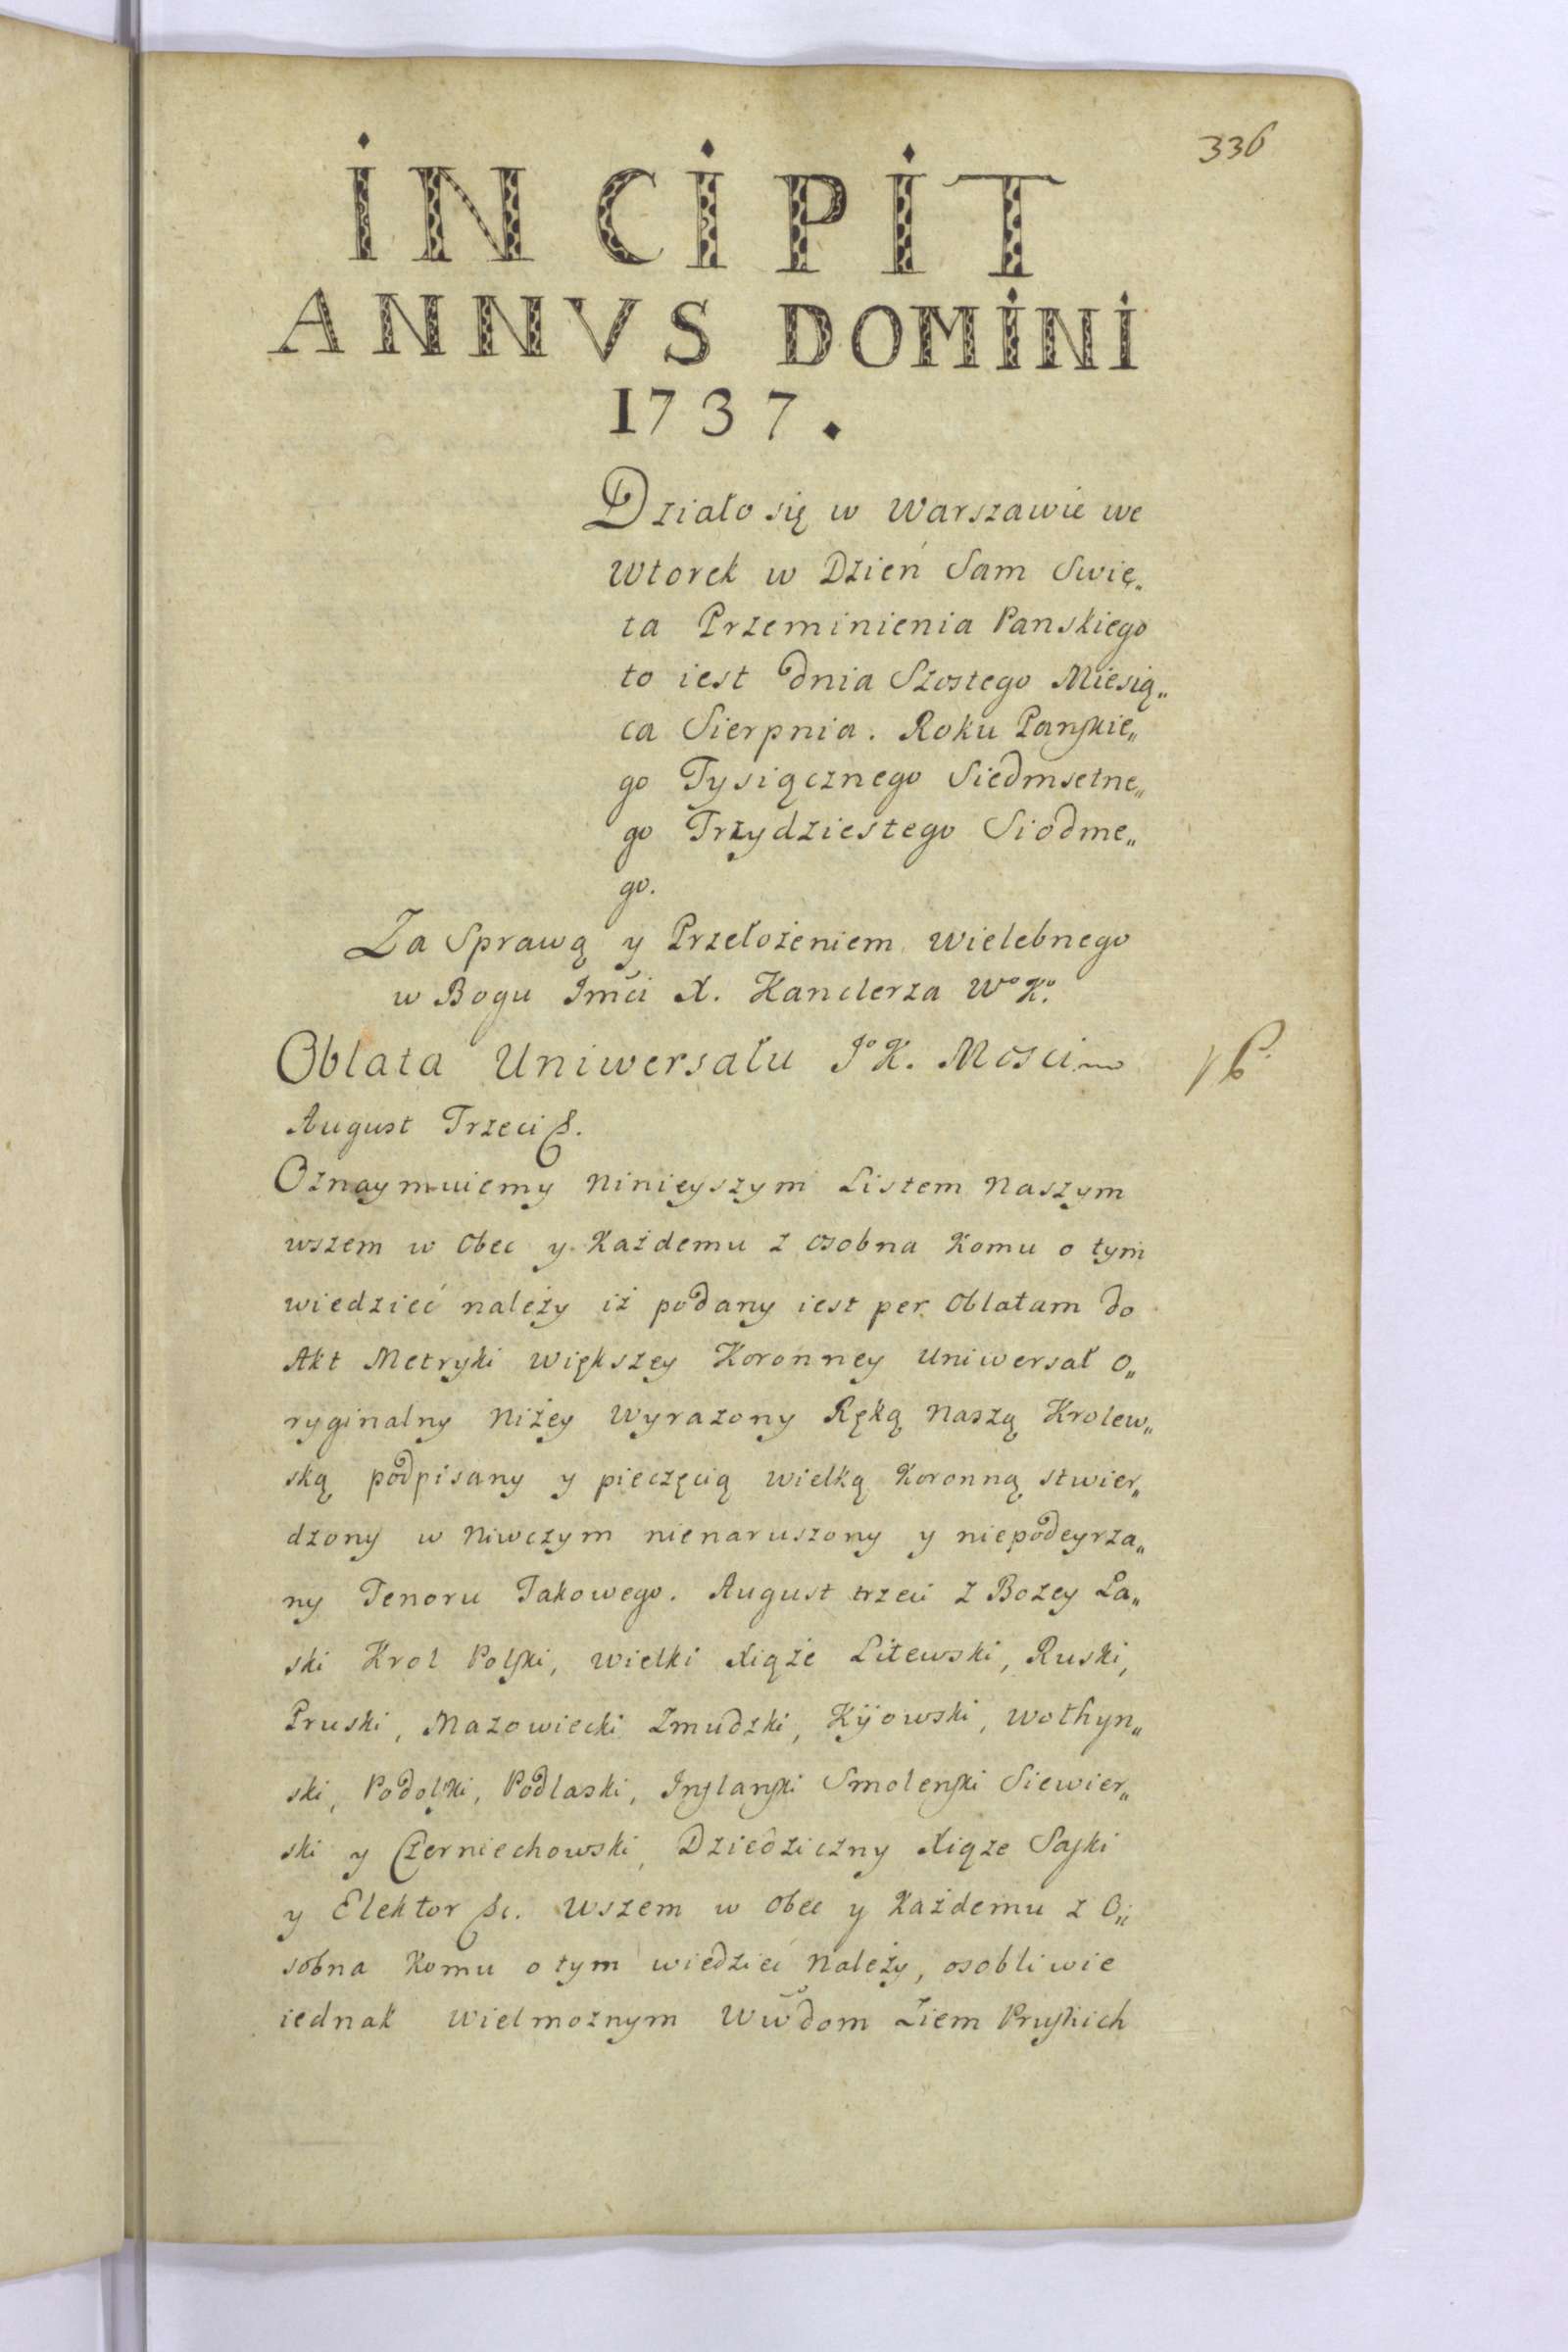 336
INCIPIT
ANNVS DOMINI
1737.
Działo się w Warszawie we
Wtorek w Dzień Sam Swię„
ta Przeminienia Panskiego
to iest dnia Szostego Miesią„
ca Sierpnia. Roku Panskie„
go Tysiącznego Siedmsetne„
go Trzydziestego Siodme„
go.
Za Sprawą y Przełożeniem Wielebnego
w Bogu Jmći X. Kanclerza Wº Kº.
Oblata Uniwersału Jº K. Mosci
August Trzeci &.
Oznaymuiemy Ninieyszym Listem Naszym
wszem w Obec y Każdemu z osobna Komu o tym
wiedzieć należy iż podany iest per Oblatam do
Akt Metryki Większey Koronney Uniwersał O„
ryginalny Niżey Wyrazony Ręką Naszą Krolew„
ską podpisany y pieczęcią wielką Koronną stwier„
dzony w Niwczym nienaruszony y niepodeyrza„
ny Tenoru Takowego. August trzeci z Bozey Ła„
ski Krol Polski, Wielki Xiąże Litewski, Ruski,
Pruski, Mazowiecki Zmudzki, Kijowski, Wołhyn„
ski, Podolski, Podlaski, Inflanski Smolenski Siewier„
ski y Czerniechowski, Dziedziczny Xiąze Saski
y Elektor &c. Wszem w Obec y Każdemu z O„
sobna Komu o tym wiedzieć Należy, osobliwie
iednak Wielmoznym Wwdom Ziem Pruskich